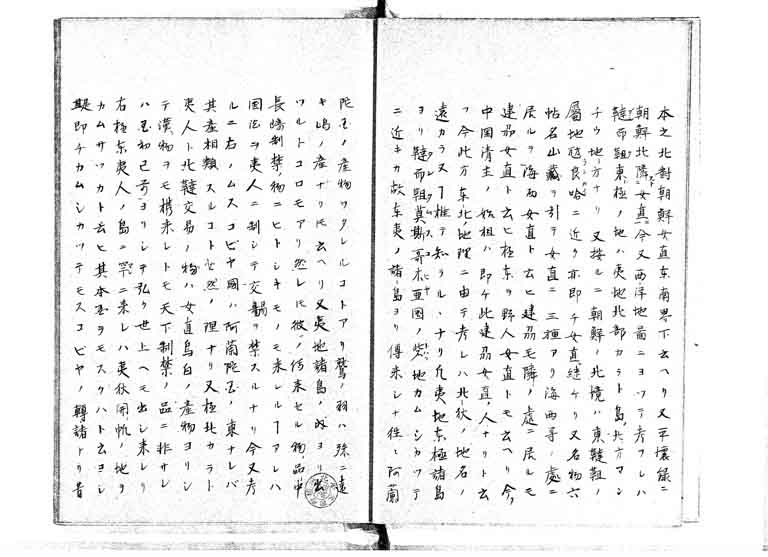 本之北對朝鮮女直东南界下云ヘリ又平壤録ニ
朝鮮北隣ニ女真今又西洋地面ニヨツテ考フレハ
韃而靼東極ノ地ハ夷地北部カラト島北方マン
チウ地方ナリ又按ルニ朝鮮ノ北境ハ東韃靼ノ
屬地良哈ニ近ク亦即チ女真ケリ又名物六
帖名山藏ヲ引テ女直ニ三種アリ海西等ノ處ニ
居ルヲ海西女直ト云ヒ建昜毛隣ノ處ニ居ルモ
建昜女直ト云ヒ極东ヲ野人女直トモ云ヘリ今
中国清主ノ始祖ハ即チ此建昜女真人ナリト云
フ今此方东北ノ地理ニ由テ考レハ北狄ノ地名ノ
遠カラスヿ推テ知ラルヽナリ凡夷地东極諸島
ヨリ韃而靼莫斯哥未亜国ノ地カムシカツテ
ニ近キカ故东夷ノ諸島ヨリ傳来シナ往々阿蘭
陀玉ノ産物ワタレルコトアリ鷲ノ羽ハ殊ニ遠
キ嶋ノ産ナリ圧云ヘリ又夷地諸島ノ奴ヨリ
ツルトコロモアリ然レ圧彼ノ行来セル物品中
長崎制禁物ニヒトシキモノモ来レルヿアレハ
国法ヲ夷人ニ制シテ交ヲ禁スルナリ今又考
ルニ右ノムスコビヤ國ハ阿蘭陀玉ノ東ナレバ
其産相類スルコト必然ノ理ナリ又極北カラト
夷人ト北韃交易ノ物ハ女直烏白ノ産物ヨリシ
テ漢物ヲモ携来レトモ天下制禁ノ品ニ非サレ
ハ玉初已前ヨリシテ弘ク世上ヘモ出シ来レリ
右極东夷人ノ島ニ罕ニ来レハ夷狄開帆ノ地ヲ
カムサツカト云ヒ其本玉ヲモスクハト云ヨシ
是即チカムシカツテモスコビヤノ轉諸トリ昔